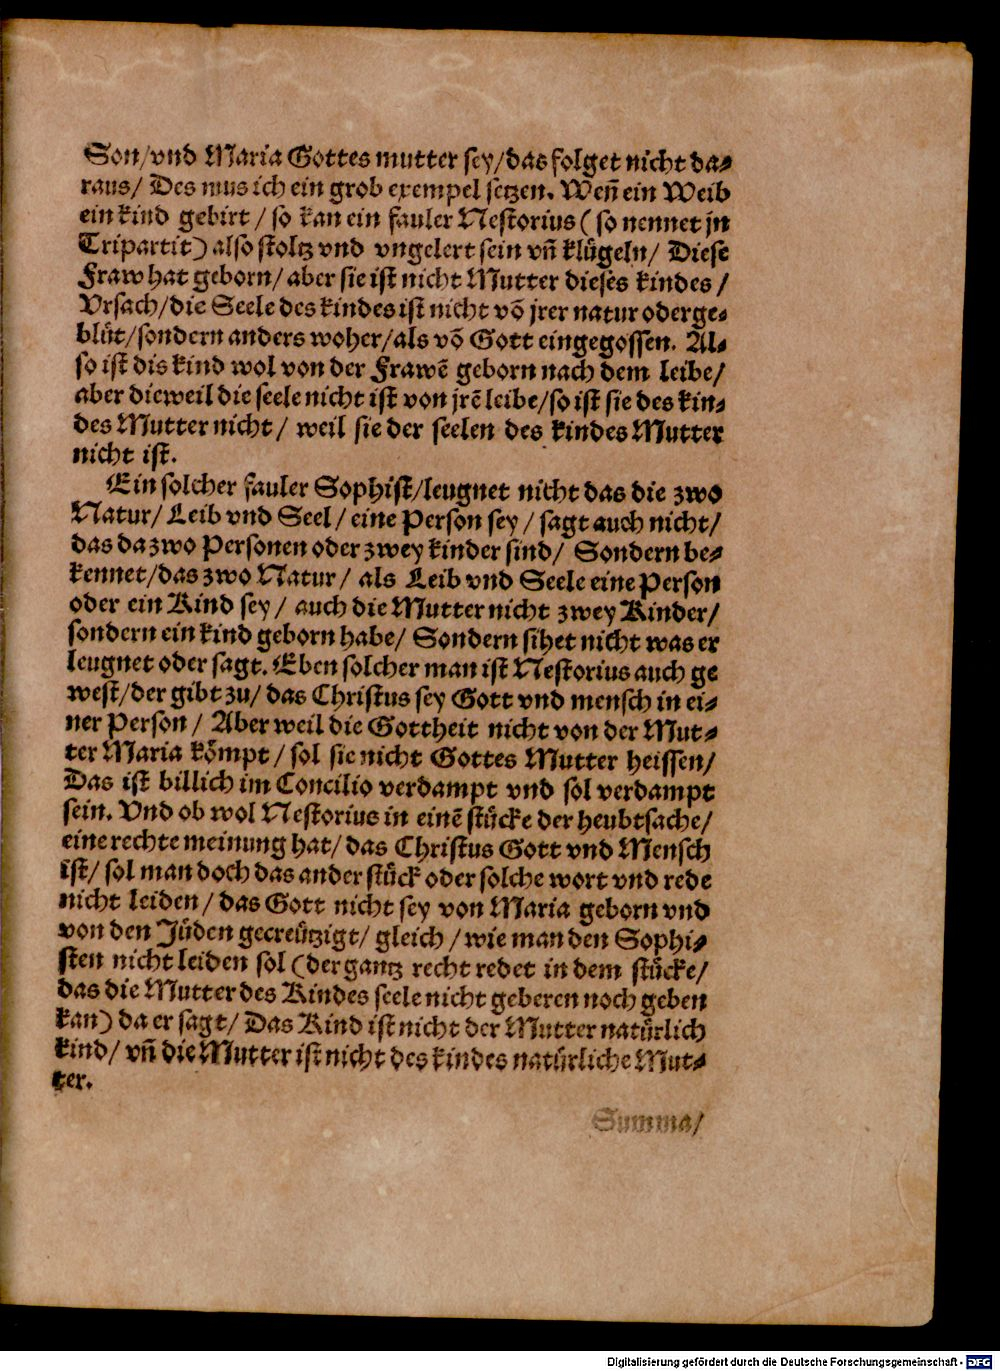 Son/vnd Maria Gottes mutter sey/das folget nicht da-
raus/ Des mus ich ein grob exempel setzen. Weñ ein Weib
ein kind gebirt/ so kan ein fauler Nestorius (so nennet jn
Tripartit) also stoltz vnd vngelert sein vñ klügeln/ Diese
Fraw hat geborn/ aber sie ist nicht Mutter dieses kindes/
Vrsach/die Seele des kindes ist nicht võ jrer natur oder ge-
blüt/sondern anders woher/als võ Gott eingegossen. Al-
so ist dis kind wol von der Frawẽ geborn nach dem leibe/
aber dieweil die seele nicht ist von jrẽ leibe/so ist sie des kin-
des Mutter nicht/ weil sie der seelen des kindes Mutter
nicht ist.
Ein solcher fauler Sophist/leugnet nicht das die zwo
Natur/ Leib vnd Seel/ eine Person sey/ sagt auch nicht/
das da zwo Personen oder zwey kinder sind/ Sondern be-
kennet/das zwo Natur/ als Leib vnd Seele eine Person
oder ein Kind sey/ auch die Mutter nicht zwey Kinder/
sondern ein kind geborn habe/ Sondern sihet nicht was er
leugnet oder sagt. Eben solcher man ist Nestorius auch ge
west/der gibt zu/ das Christus sey Gott vnd mensch in ei-
ner Person/ Aber weil die Gottheit nicht von der Mut-
ter Maria kömpt/ sol sie nicht Gottes Mutter heissen/
Das ist billich im Concilio verdampt vnd sol verdampt
sein. Vnd ob wol Nestorius in einẽ stücke der heubtsache/
eine rechte meinung hat/ das Christus Gott vnd Mensch
ist/ sol man doch das ander stück oder solche wort vnd rede
nicht leiden/ das Gott nicht sey von Maria geborn vnd
von den Jüden gecreützigt/ gleich/ wie man den Sophi-
sten nicht leiden sol (der gantz recht redet in dem stücke/
das die Mutter des Kindes seele nicht geberen noch geben
kan) da er sagt/ Das Kind ist nicht der Mutter natürlich
kind/ vñ die Mutter ist nicht des kindes natürliche Mut-
ter.
Summa/
Digitalisierung gefördert durch die Deutsche Forschungsgemeinschaft - DFG